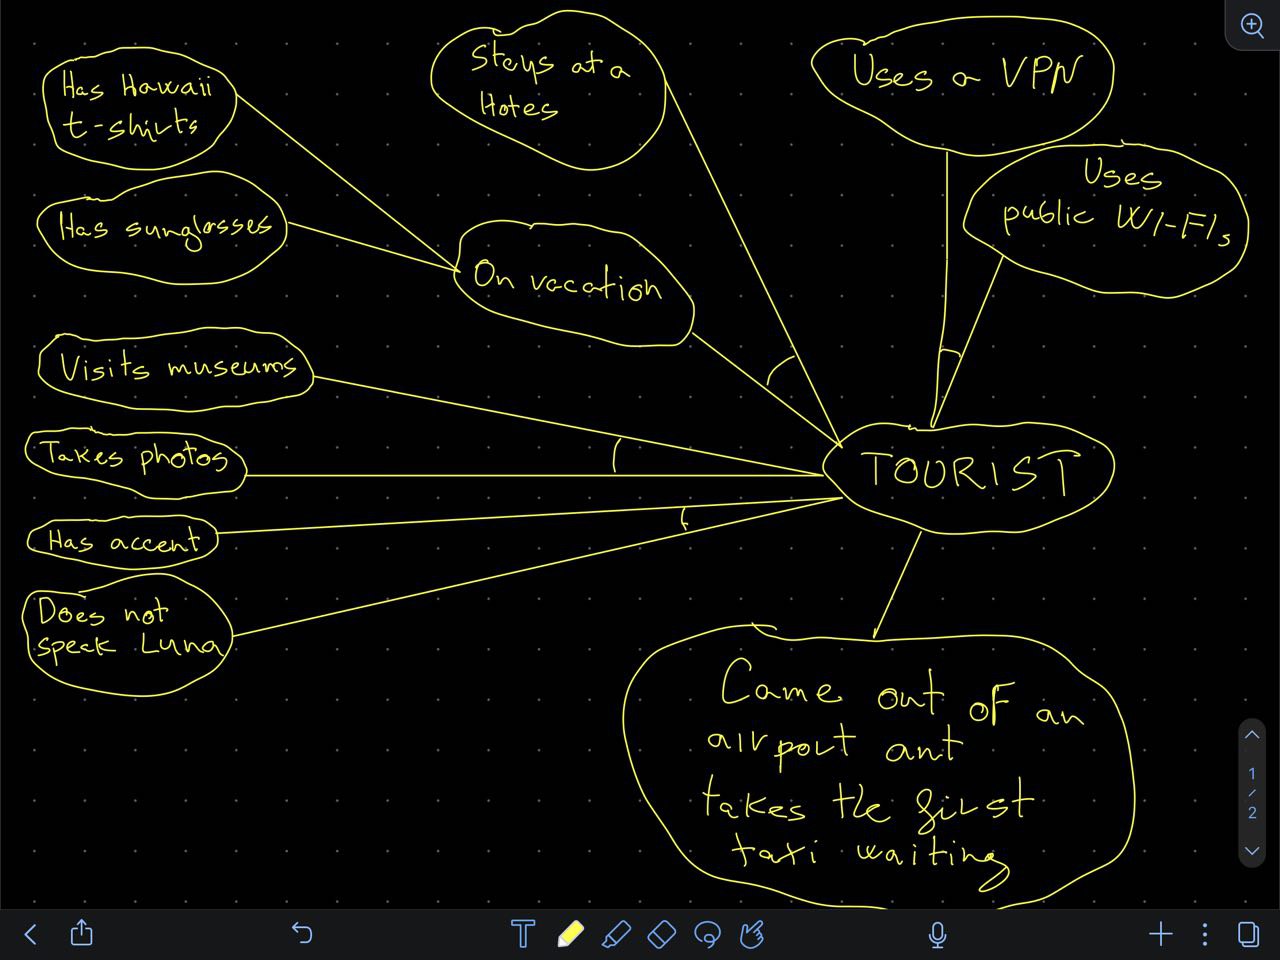 Has Hawaii
t-shirts
Stays at a
Hotes
Uses a VPN
Uses
public WI-FIs
Has sunglasses
On vacation
Visits museums
Takes photos
TOURIST
Has accent
Does not
speak Luna
Came out of an
airport ant
takes the first
taxi waiting
1
/
2
T